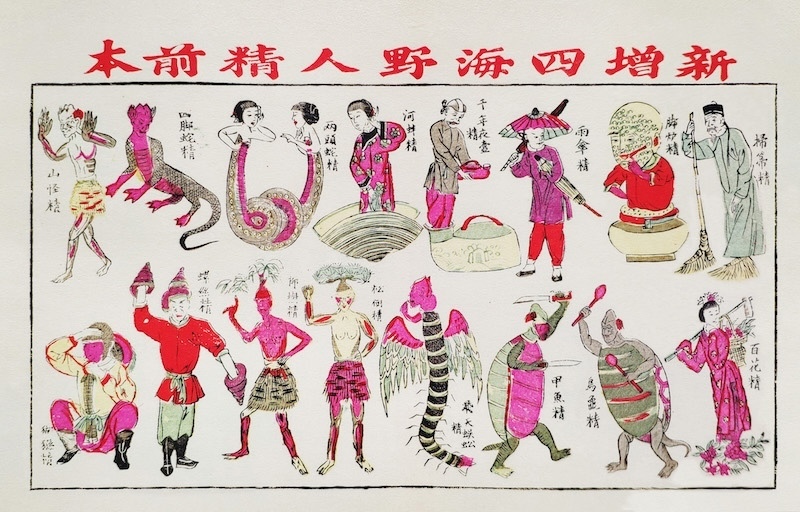 新增四海野人精前本
掃帚精
脚炉精
雨傘精
千年夜壺
精
河蚌精
两頭蛇精
四脚蛇精
山怪精
百花精
烏龜精
甲魚精
飛天蜈蚣
精
松樹精
柳樹精
螺螄精